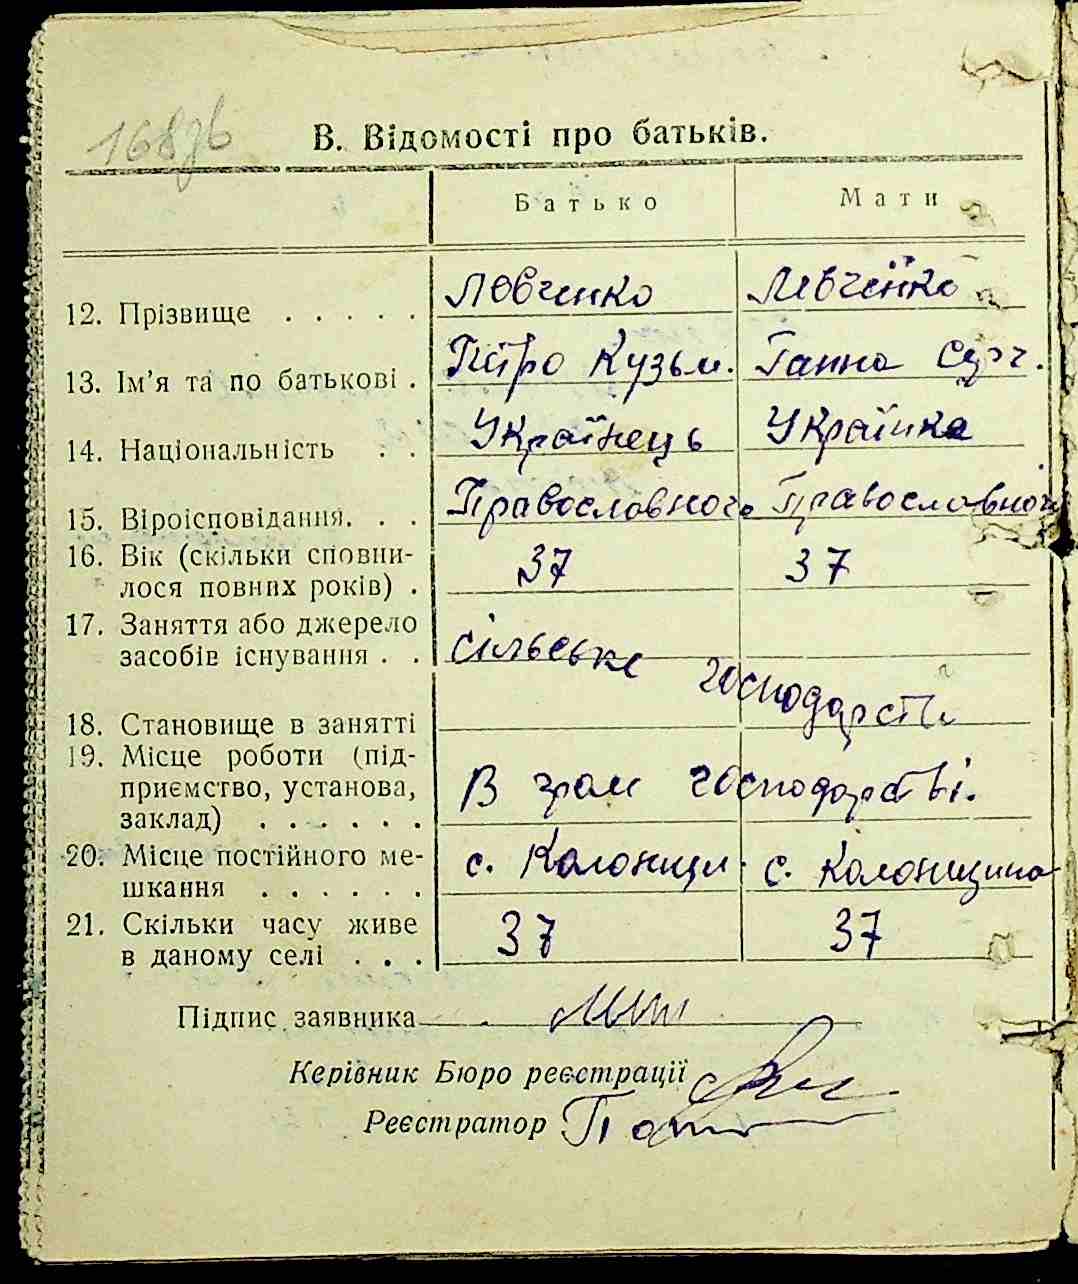 168зв
В. Відомості про батьків.
Батько Мати
12. Прізвище . . . . . Левченко Левченко
13. Ім’я та по батькові . Петро Кузьм. Ганна Серг.
14. Національність . . Українець Українка
15. Віроісповідання. . . Православного Православного
16. Вік (скільки сповни-
лося повних років) . 37 37
17. Заняття або джерело
засобів існування . . сільське господарств
18. Становище в занятті
19. Місце роботи (під-
приємство, установа,
заклад) . . . . . . В гром господарстві.
20. Місце постійного ме-
шкання . . . . . . с. Колонщи с. Колонщина
21. Скільки часу живе
в даному селі . . . 37 37
Підпис заявника
Керівник Бюро реєстрації
Реєстратор